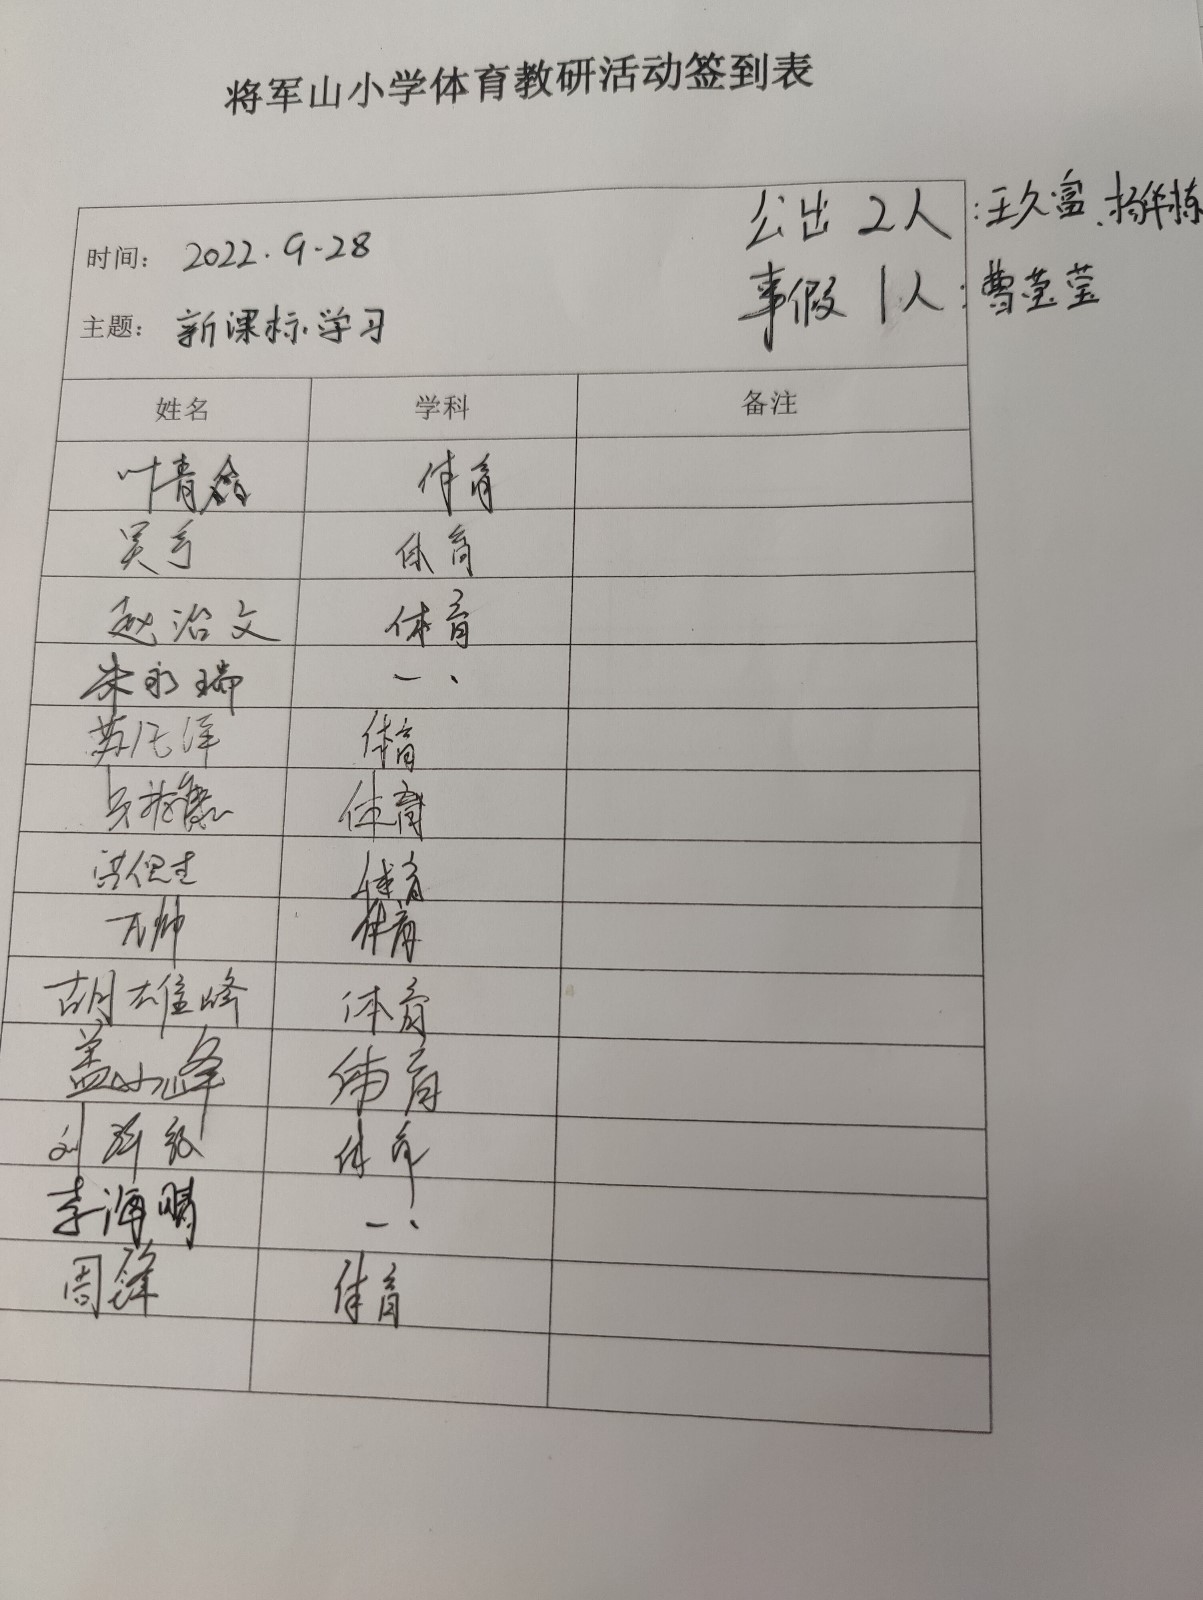 将军山小学体育教研活动签到表
公出 2人:王久富、杨华栋
时间: 2022.9.28
事假 1人:曹莹莹
主题: 新课标学习
姓名 学科 备注
叶青 体育
吴亏 体育
赵治文 体育
朱永瑞 一、
苏 洋 体育
吴 体育
洪 体育
帅 体育
胡雄峰 体育
盖小峰 体育
刘 体育
李海晴 一、
周锋 体育